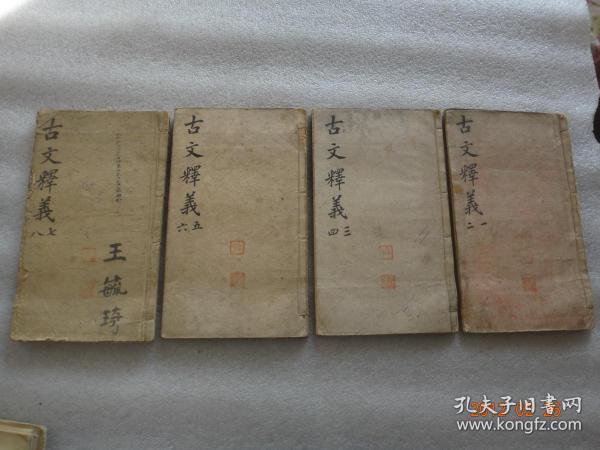 古文釋義
一
二
古文釋義
三
四
古文釋義
五
六
古文釋義
七
八
王毓琦
孔夫子旧书网
www.kongfz.com